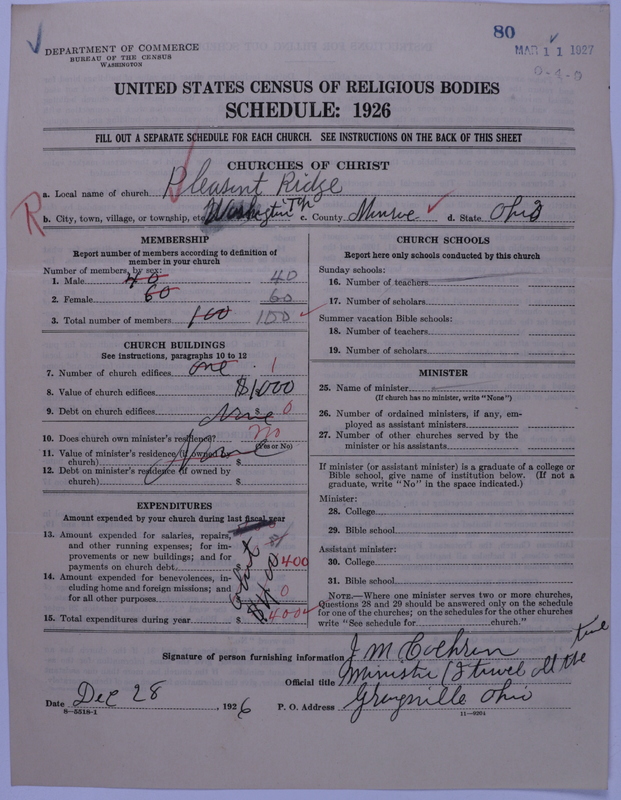 80
DEPARTMENT OF COMMERCE
BUREAU OF THE CENSUS
WASHINGTON
MAR 11 1927
0-4-0
UNITED STATES CENSUS OF RELIGIOUS BODIES
SCHEDULE: 1926
FILL OUT A SEPARATE SCHEDULE FOR EACH CHURCH. SEE INSTRUCTIONS ON THE BACK OF THIS SHEET
CHURCHES OF CHRIST
a. Local name of church Pleasint Ridge
R b. City, town, village, or township, etc. Washington Tp c. County Monroe d. State Ohio
MEMBERSHIP
Report number of members according to definition of
member in your church
Number of members, by sex:
1. Male 40 40
2. Female 60 60
3. Total number of members 100 100
CHURCH BUILDINGS
See instructions, paragraphs 10 to 12
7. Number of church edifices one 1
8. Value of church edifices $1,000
9. Debt on church edifices None $ 0
10. Does church own minister's residence? No
(Yes or No)
11. Value of minister's residence (if owned by
church) $ None
12. Debt on minister's residence (if owned by
church) $
EXPENDITURES
Amount expended by your church during last fiscal year
13. Amount expended for salaries, repairs,
and other running expenses; for im-
provements or new buildings; and for
payments on church debt $ 400
14. Amount expended for benevolences, in-
cluding home and foreign missions; and
for all other purposes 0
15. Total expenditures during year $ 400
about $400
CHURCH SCHOOLS
Report here only schools conducted by this church
Sunday schools:
16. Number of teachers
17. Number of scholars
Summer vacation Bible schools:
18. Number of teachers
19. Number of scholars
MINISTER
25. Name of minister
(If church has no minister, write "None")
26. Number of ordained ministers, if any, em-
ployed as assistant ministers
27. Number of other churches served by the
minister or his assistants
If minister (or assistant minister) is a graduate of a college or
Bible school, give name of institution below. (If not a
graduate, write "No" in the space indicated.)
Minister:
28. College
29. Bible school
Assistant minister:
30. College
31. Bible school
NOTE.—Where one minister serves two or more churches,
Questions 28 and 29 should be answered only on the schedule
for one of the churches; on the schedules for the other churches
write "See schedule for church."
Signature of person furnishing information J M Cochrin
Official title Minister (I travel all the time
Date Dec 28, 1926 P. O. Address Graysville Ohio
8—5518-1 11—9204